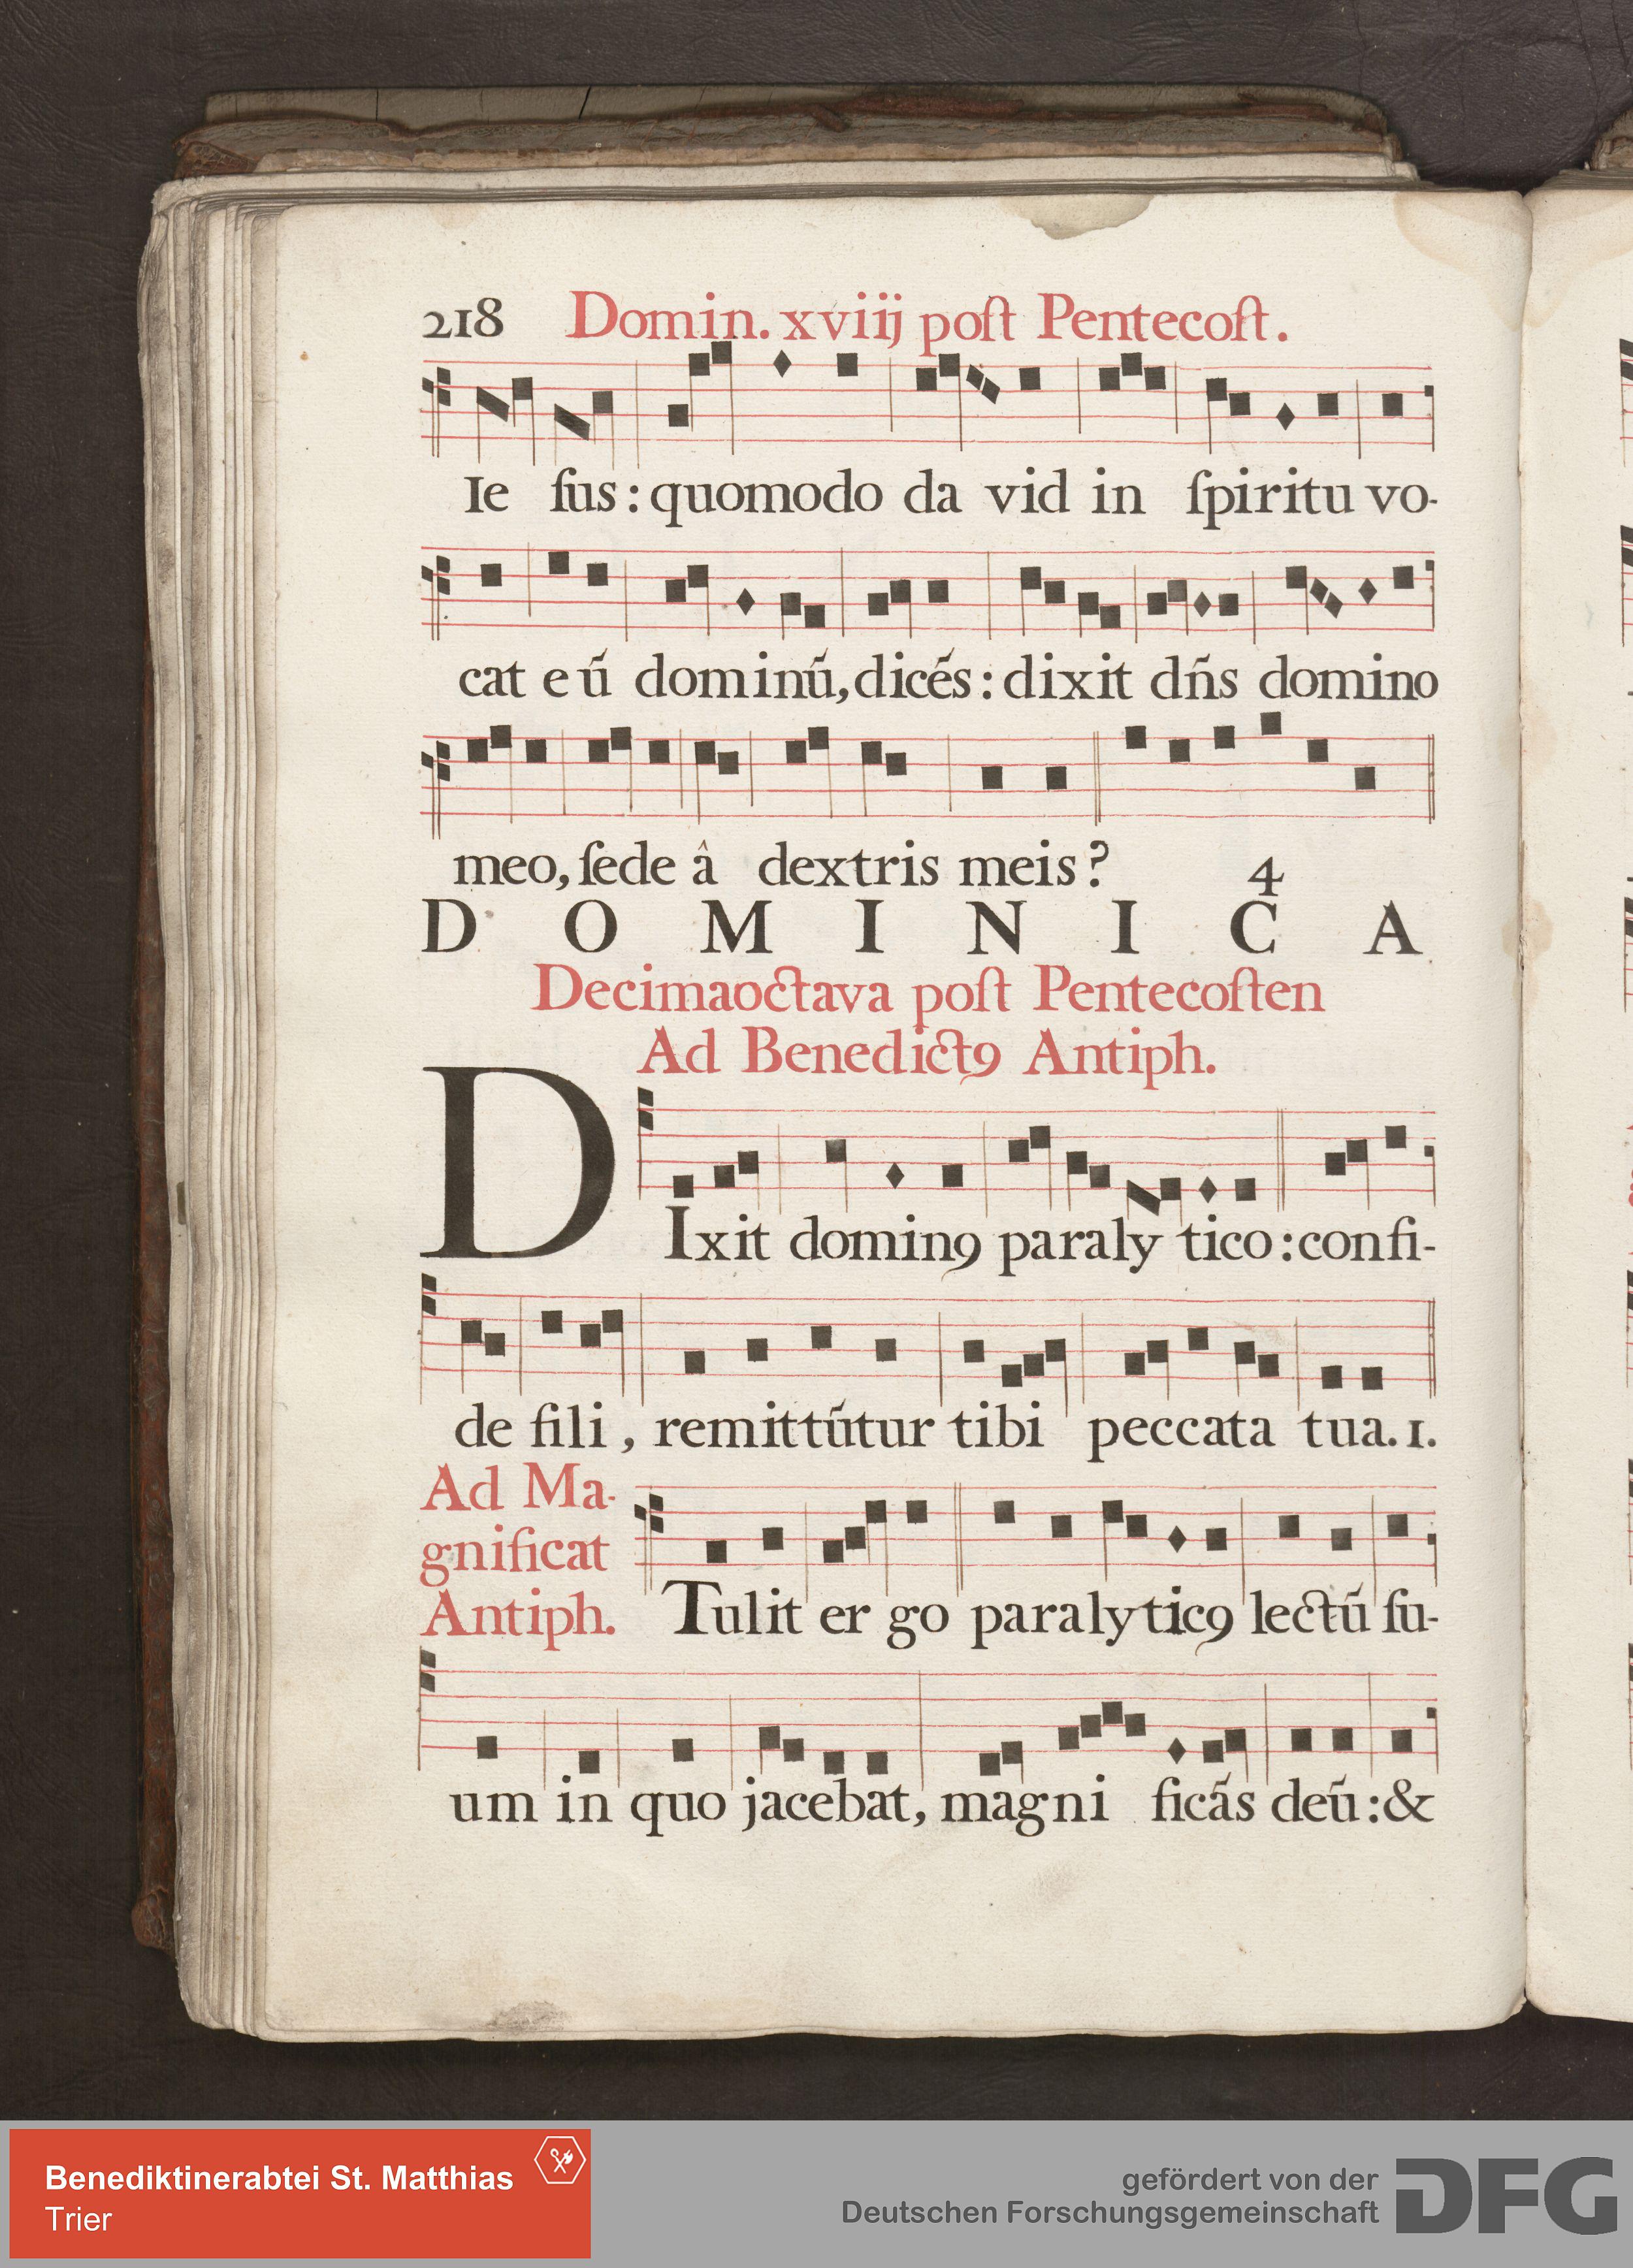 218 Domin. xviij poſt Pentecoſt.
Ie ſus : quomodo da vid in ſpiritu vo-
cat eū dominū, dicēs : dixit dn̄s domino
meo, ſede â dextris meis ? 4
D O M I N I C A
Decimaoctava poſt Pentecoſten
Ad Benedictꝰ Antiph.
DIxit dominꝰ paraly tico : confi-
de fili , remittūtur tibi peccata tua. 1.
Ad Ma-
gnificat
Antiph. Tulit er go paralyticꝰ lectū ſu-
um in quo jacebat, magni ficās deū : &
Benediktinerabtei St. Matthias
Trier
gefördert von der
Deutschen Forschungsgemeinschaft
DFG